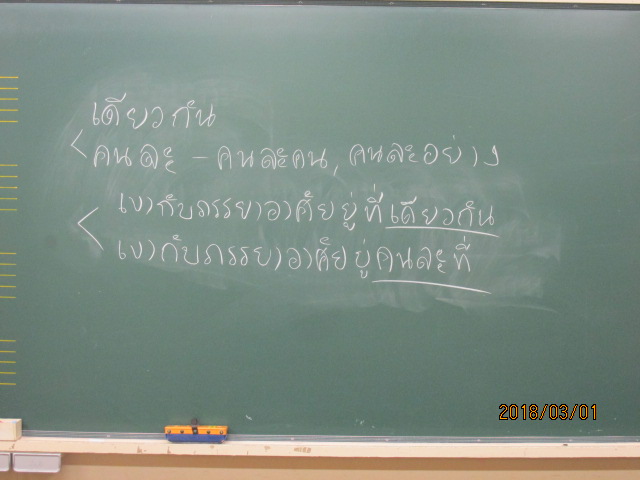 เดียวกัน
คนละ - คนละคน, คนละอย่าง
เขากับภรรยาอาศัยอยู่ที่เดียวกัน
เขากับภรรยาอาศัยอยู่คนละที่
2018/03/01